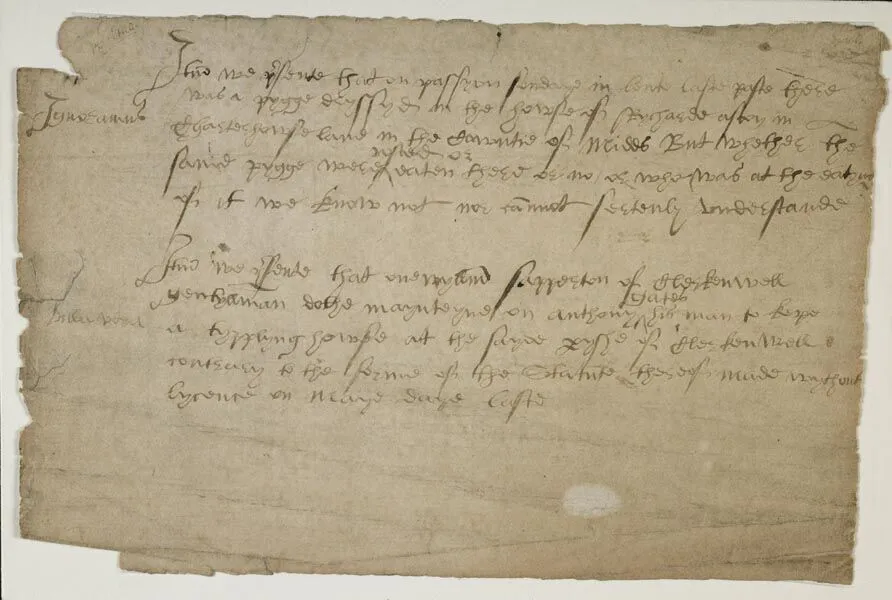 Itm we psente that on passyon sondaye in lente laste paste there
was a pygge dryssyd in the howse of Rycharde in
Ignoramus
Charterhowse lane in the Cowntie of Midds But whether the
rosted or
same pygge were eaten there or no or who was at the eatyng
of it we know not nor cannot sertenly understande
Itm we psente that one Wyllm Sapperton of Clerkenwell
gentylman dothe maynteyne on Anthony Gates his man to kepe
billa vera
a typplyng howse at the sayde pyshe of Clerkenwell
contrary to the forme of the Statute thereof made wythout
lycence on Maye daye laste